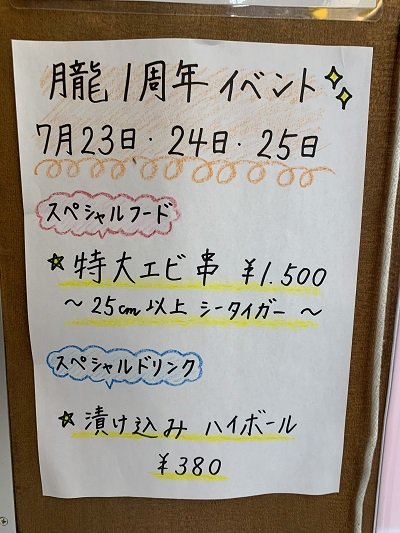 朧1周年イベント
7月23日・24日・25日
スペシャルフード
☆特大エビ串 ¥1.500
～25cm以上 シータイガー～
スペシャルドリンク
☆漬け込み ハイボール
¥380